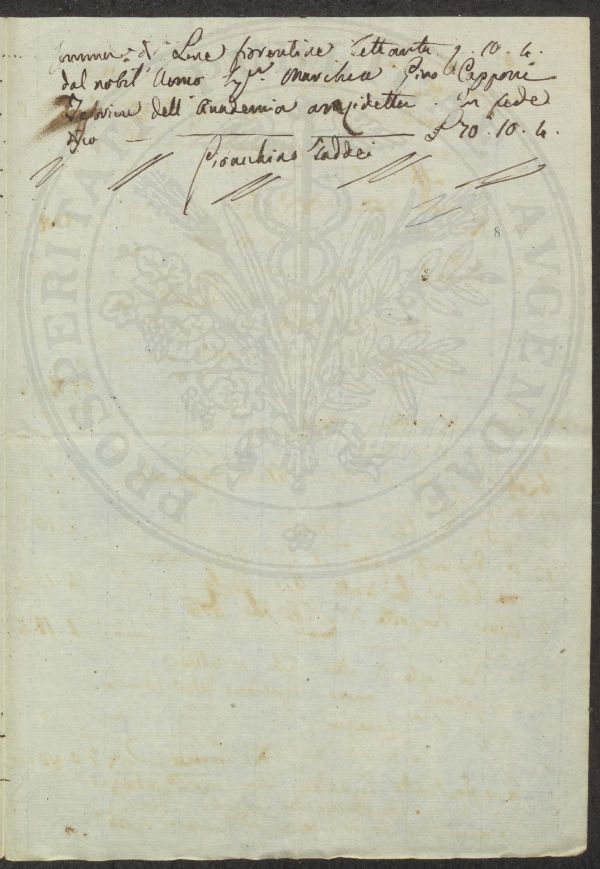 somma di Lire fiorentine Settanta 10.4.
dal nobil Uomo Sig.r Marchese Gino Capponi
dell' Accademia anzidetta. In fede
dico £ 70.10.4.
Gioacchino Taddei
8
PROSPERITATI AVGENDAE